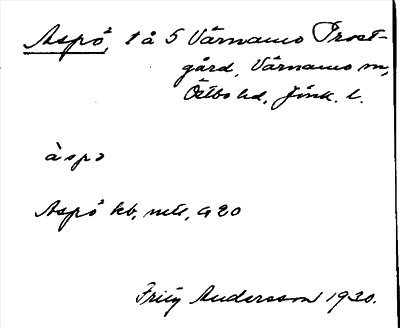 Aspö, 1 å 5 Värnamo Prost-
gård, Värnamo sn,
Östbo hd, Jönk. l.
àspö
Aspö kb,
Andersson 1930.